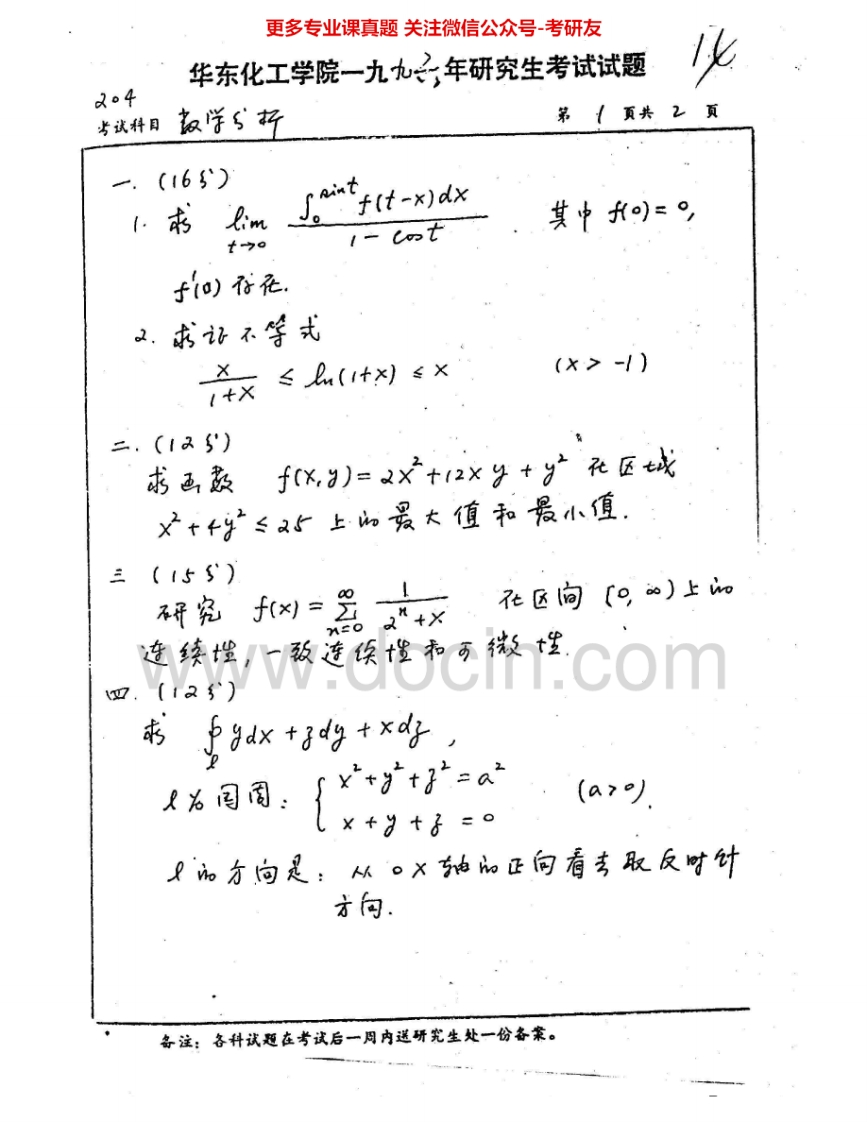 更多专业课真题 关注微信公众号-考研友
华东化工学院一九九 年研究生考试试题 14
204
考试科目 数学分析 第 1 页共 2 页
一. (16分)
1. 求 lim_{t→0} \frac{∫_0^{sint} f(t-x)dx}{1-cost} . 其中 f(0)=0,
f'(0)存在.
2. 求证不等式
\frac{x}{1+x} ≤ ln(1+x) ≤ x (x > -1)
二. (12分)
求函数 f(x,y)=2x²+12xy+y² 在区域
x²+4y² ≤ 25 上的最大值和最小值.
三 (15分)
研究 f(x)=∑_{n=0}^{∞} \frac{1}{2^n+x} 在区间 [0,∞)上的
连续性,一致连续性和可微性.
www.docin.com
四. (12分)
求 ∮_l ydx+zdy+xdz,
l为圆周: { x²+y²+z²=a² (a>0).
x+y+z=0
l的方向是: 从ox轴的正向看去取反时针
方向.
备注: 各科试题在考试后一周内送研究生处一份备案。